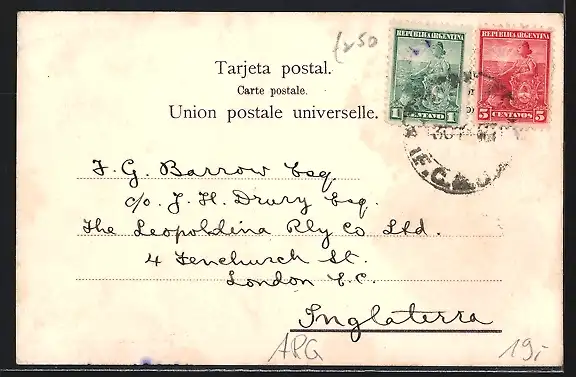 £x50
REPUBLICA ARGENTINA
1 CENTAVO 1
REPUBLICA ARGENTINA
5 CENTAVOS 5
Tarjeta postal.
Carte postale.
Union postale universelle.
F. G. Barrow Esq.
c/o. J. H. Drury Esq.
The Leopoldina Rly Co Ltd.
4 Fenchurch St.
London E.C.
Inglaterra
APG
19,-